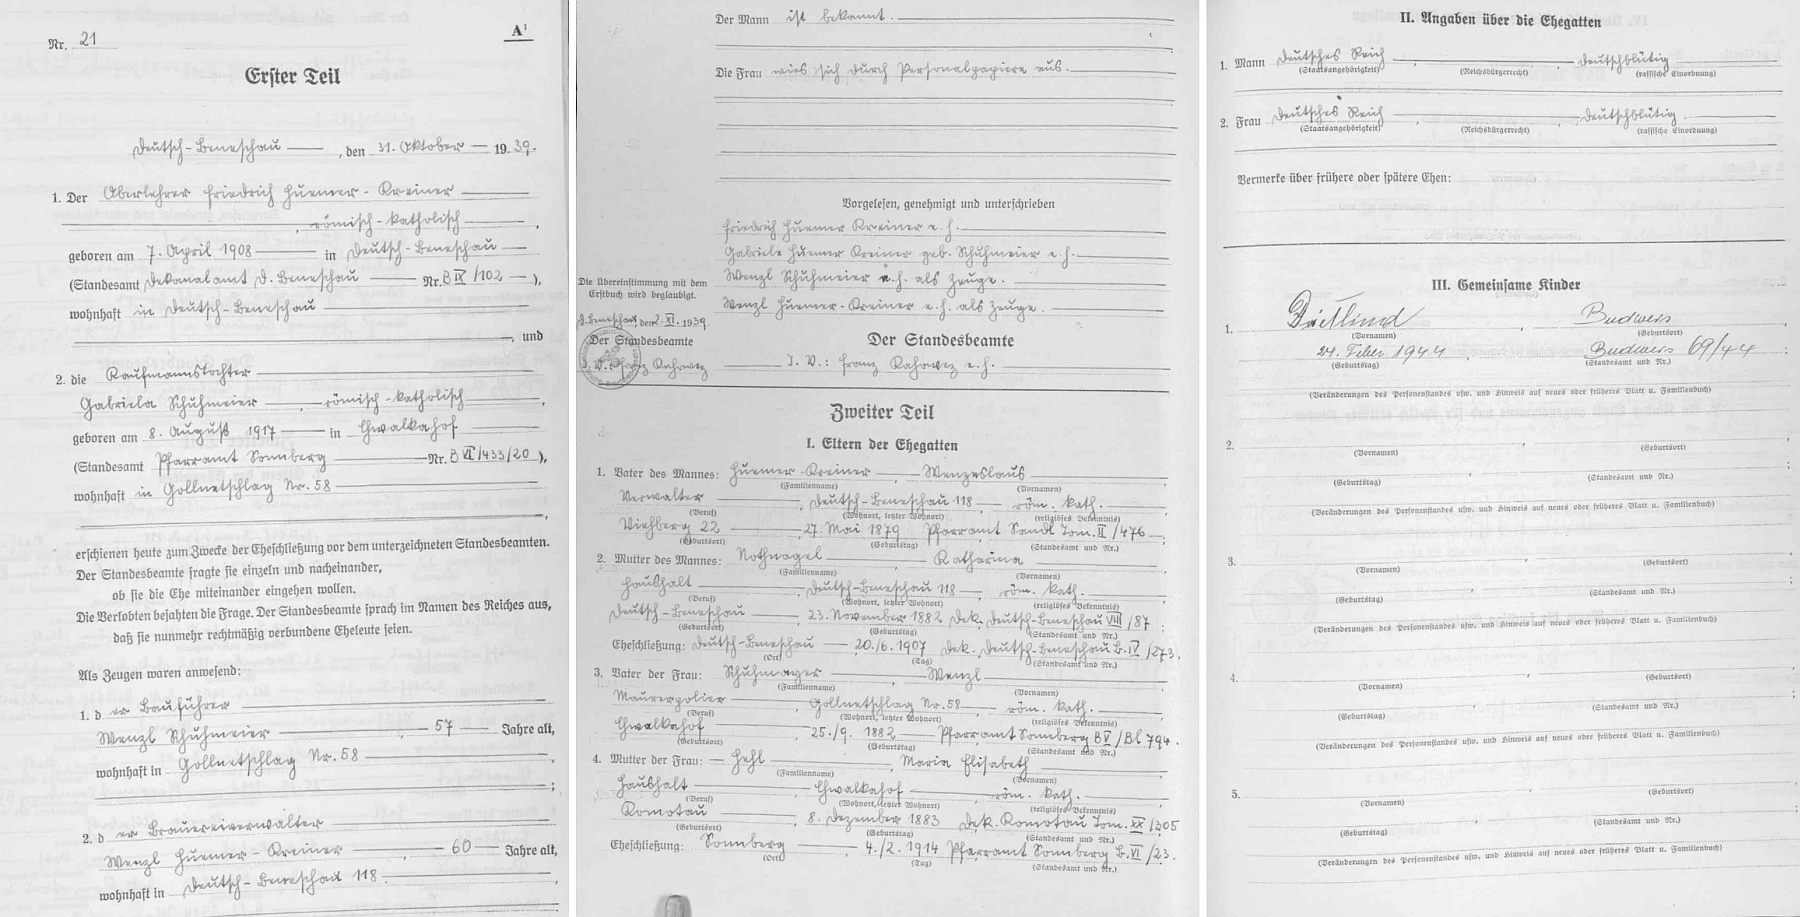 Nr. 21
A¹
Erster Teil
Deutsch-Beneschau, den 31. Oktober 1939.
1. Der Oberlehrer Friedrich Huemer-Kreiner
, römisch-katholisch,
geboren am 7. April 1908 in Deutsch-Beneschau
(Standesamt Dekanalamt D. Beneschau Nr. B IX/102),
wohnhaft in Deutsch-Beneschau
, und
2. die Kaufmannstochter
Gabriela Schuhmeier, römisch-katholisch,
geboren am 8. August 1917 in Chwalkahof
(Standesamt Pfarramt Sonnberg Nr. B VI/433/20),
wohnhaft in Gollnetschlag Nr. 58
,
erschienen heute zum Zwecke der Eheschließung vor dem unterzeichneten Standesbeamten.
Der Standesbeamte fragte sie einzeln und nacheinander,
ob sie die Ehe miteinander eingehen wollen.
Die Verlobten bejahten die Frage. Der Standesbeamte sprach im Namen des Reiches aus,
daß sie nunmehr rechtmäßig verbundene Eheleute seien.
Als Zeugen waren anwesend:
1. d er Bauführer
Wenzl Schuhmeier, 57 Jahre alt,
wohnhaft in Gollnetschlag Nr. 58
;
2. d er Brauereiverwalter
Wenzl Huemer-Kreiner, 60 Jahre alt,
wohnhaft in Deutsch-Beneschau 118.
Der Mann ist bekannt.
Die Frau wies sich durch Personalpapiere aus.
Vorgelesen, genehmigt und unterschrieben
Friedrich Huemer Kreiner e.h.
Gabriele Huemer Kreiner geb. Schuhmeier e.h.
Wenzl Schuhmeier e.h. als Zeuge.
Wenzl Huemer-Kreiner e.h. als Zeuge.
Die Übereinstimmung mit dem
Erstbuch wird beglaubigt.
D. Beneschau, den 2. XI. 1939.
Der Standesbeamte
I. V.: Franz
Der Standesbeamte
I. V.: Franz e.h.
Zweiter Teil
I. Eltern der Ehegatten
1. Vater des Mannes: Huemer-Kreiner, Wenzeslaus
(Familienname) (Vornamen)
Verwalter, Deutsch-Beneschau 118, röm. kath.
(Beruf) (Wohnort, letzter Wohnort) (religiöses Bekenntnis)
Viehberg 22, 27. Mai 1879 Pfarramt Sandl Tom. II/476;
(Geburtsort) (Geburtstag) (Standesamt und Nr.)
2. Mutter des Mannes: Nothnagel, Katharina
(Familienname) (Vornamen)
Haushalt, Deutsch-Beneschau 118, röm. kath.
(Beruf) (Wohnort, letzter Wohnort) (religiöses Bekenntnis)
Deutsch-Beneschau, 23. November 1882 Dek. Deutsch-Beneschau VIII/87;
(Geburtsort) (Geburtstag) (Standesamt und Nr.)
Eheschließung: Deutsch-Beneschau 20./6. 1907 Dek. Deutsch-Beneschau B. IV/273.
(Ort) (Tag) (Standesamt und Nr.)
3. Vater der Frau: Schuhmayer, Wenzl
(Familienname) (Vornamen)
Maurerpolier, Gollnetschlag Nr. 58, röm. kath.
(Beruf) (Wohnort, letzter Wohnort) (religiöses Bekenntnis)
Chwalkahof, 25./9. 1882 Pfarramt Sonnberg B V/Bl 794.
(Geburtsort) (Geburtstag) (Standesamt und Nr.)
4. Mutter der Frau: Hehl, Maria Elisabeth
(Familienname) (Vornamen)
Haushalt, Chwalkahof, röm. kath.
(Beruf) (Wohnort, letzter Wohnort) (religiöses Bekenntnis)
Komotau, 8. Dezember 1883 Dek. Komotau Tom. XX/305
(Geburtsort) (Geburtstag) (Standesamt und Nr.)
Eheschließung: Sonnberg, 4./2. 1914 Pfarramt Sonnberg B. VI/23.
(Ort) (Tag) (Standesamt und Nr.)
II. Angaben über die Ehegatten
1. Mann Deutsches Reich, , deutschblütig
(Staatsangehörigkeit) (Reichsbürgerrecht) (rassische Einordnung)
2. Frau Deutsches Reich, , deutschblütig.
(Staatsangehörigkeit) (Reichsbürgerrecht) (rassische Einordnung)
Vermerke über frühere oder spätere Ehen:
III. Gemeinsame Kinder
1. Dietlind, Budweis
(Vornamen) (Geburtsort)
24. Feber 1944, Budweis 69/44;
(Geburtstag) (Standesamt und Nr.)
(Veränderungen des Personenstandes usw. und Hinweis auf neues oder früheres Blatt u. Familienbuch)
2. , ,
(Vornamen) (Geburtsort)
, ;
(Geburtstag) (Standesamt und Nr.)
(Veränderungen des Personenstandes usw. und Hinweis auf neues oder früheres Blatt u. Familienbuch)
3. , ,
(Vornamen) (Geburtsort)
, ;
(Geburtstag) (Standesamt und Nr.)
(Veränderungen des Personenstandes usw. und Hinweis auf neues oder früheres Blatt u. Familienbuch)
4. , ,
(Vornamen) (Geburtsort)
, ;
(Geburtstag) (Standesamt und Nr.)
(Veränderungen des Personenstandes usw. und Hinweis auf neues oder früheres Blatt u. Familienbuch)
5. , ,
(Vornamen) (Geburtsort)
, ;
(Geburtstag) (Standesamt und Nr.)
(Veränderungen des Personenstandes usw. und Hinweis auf neues oder früheres Blatt u. Familienbuch)